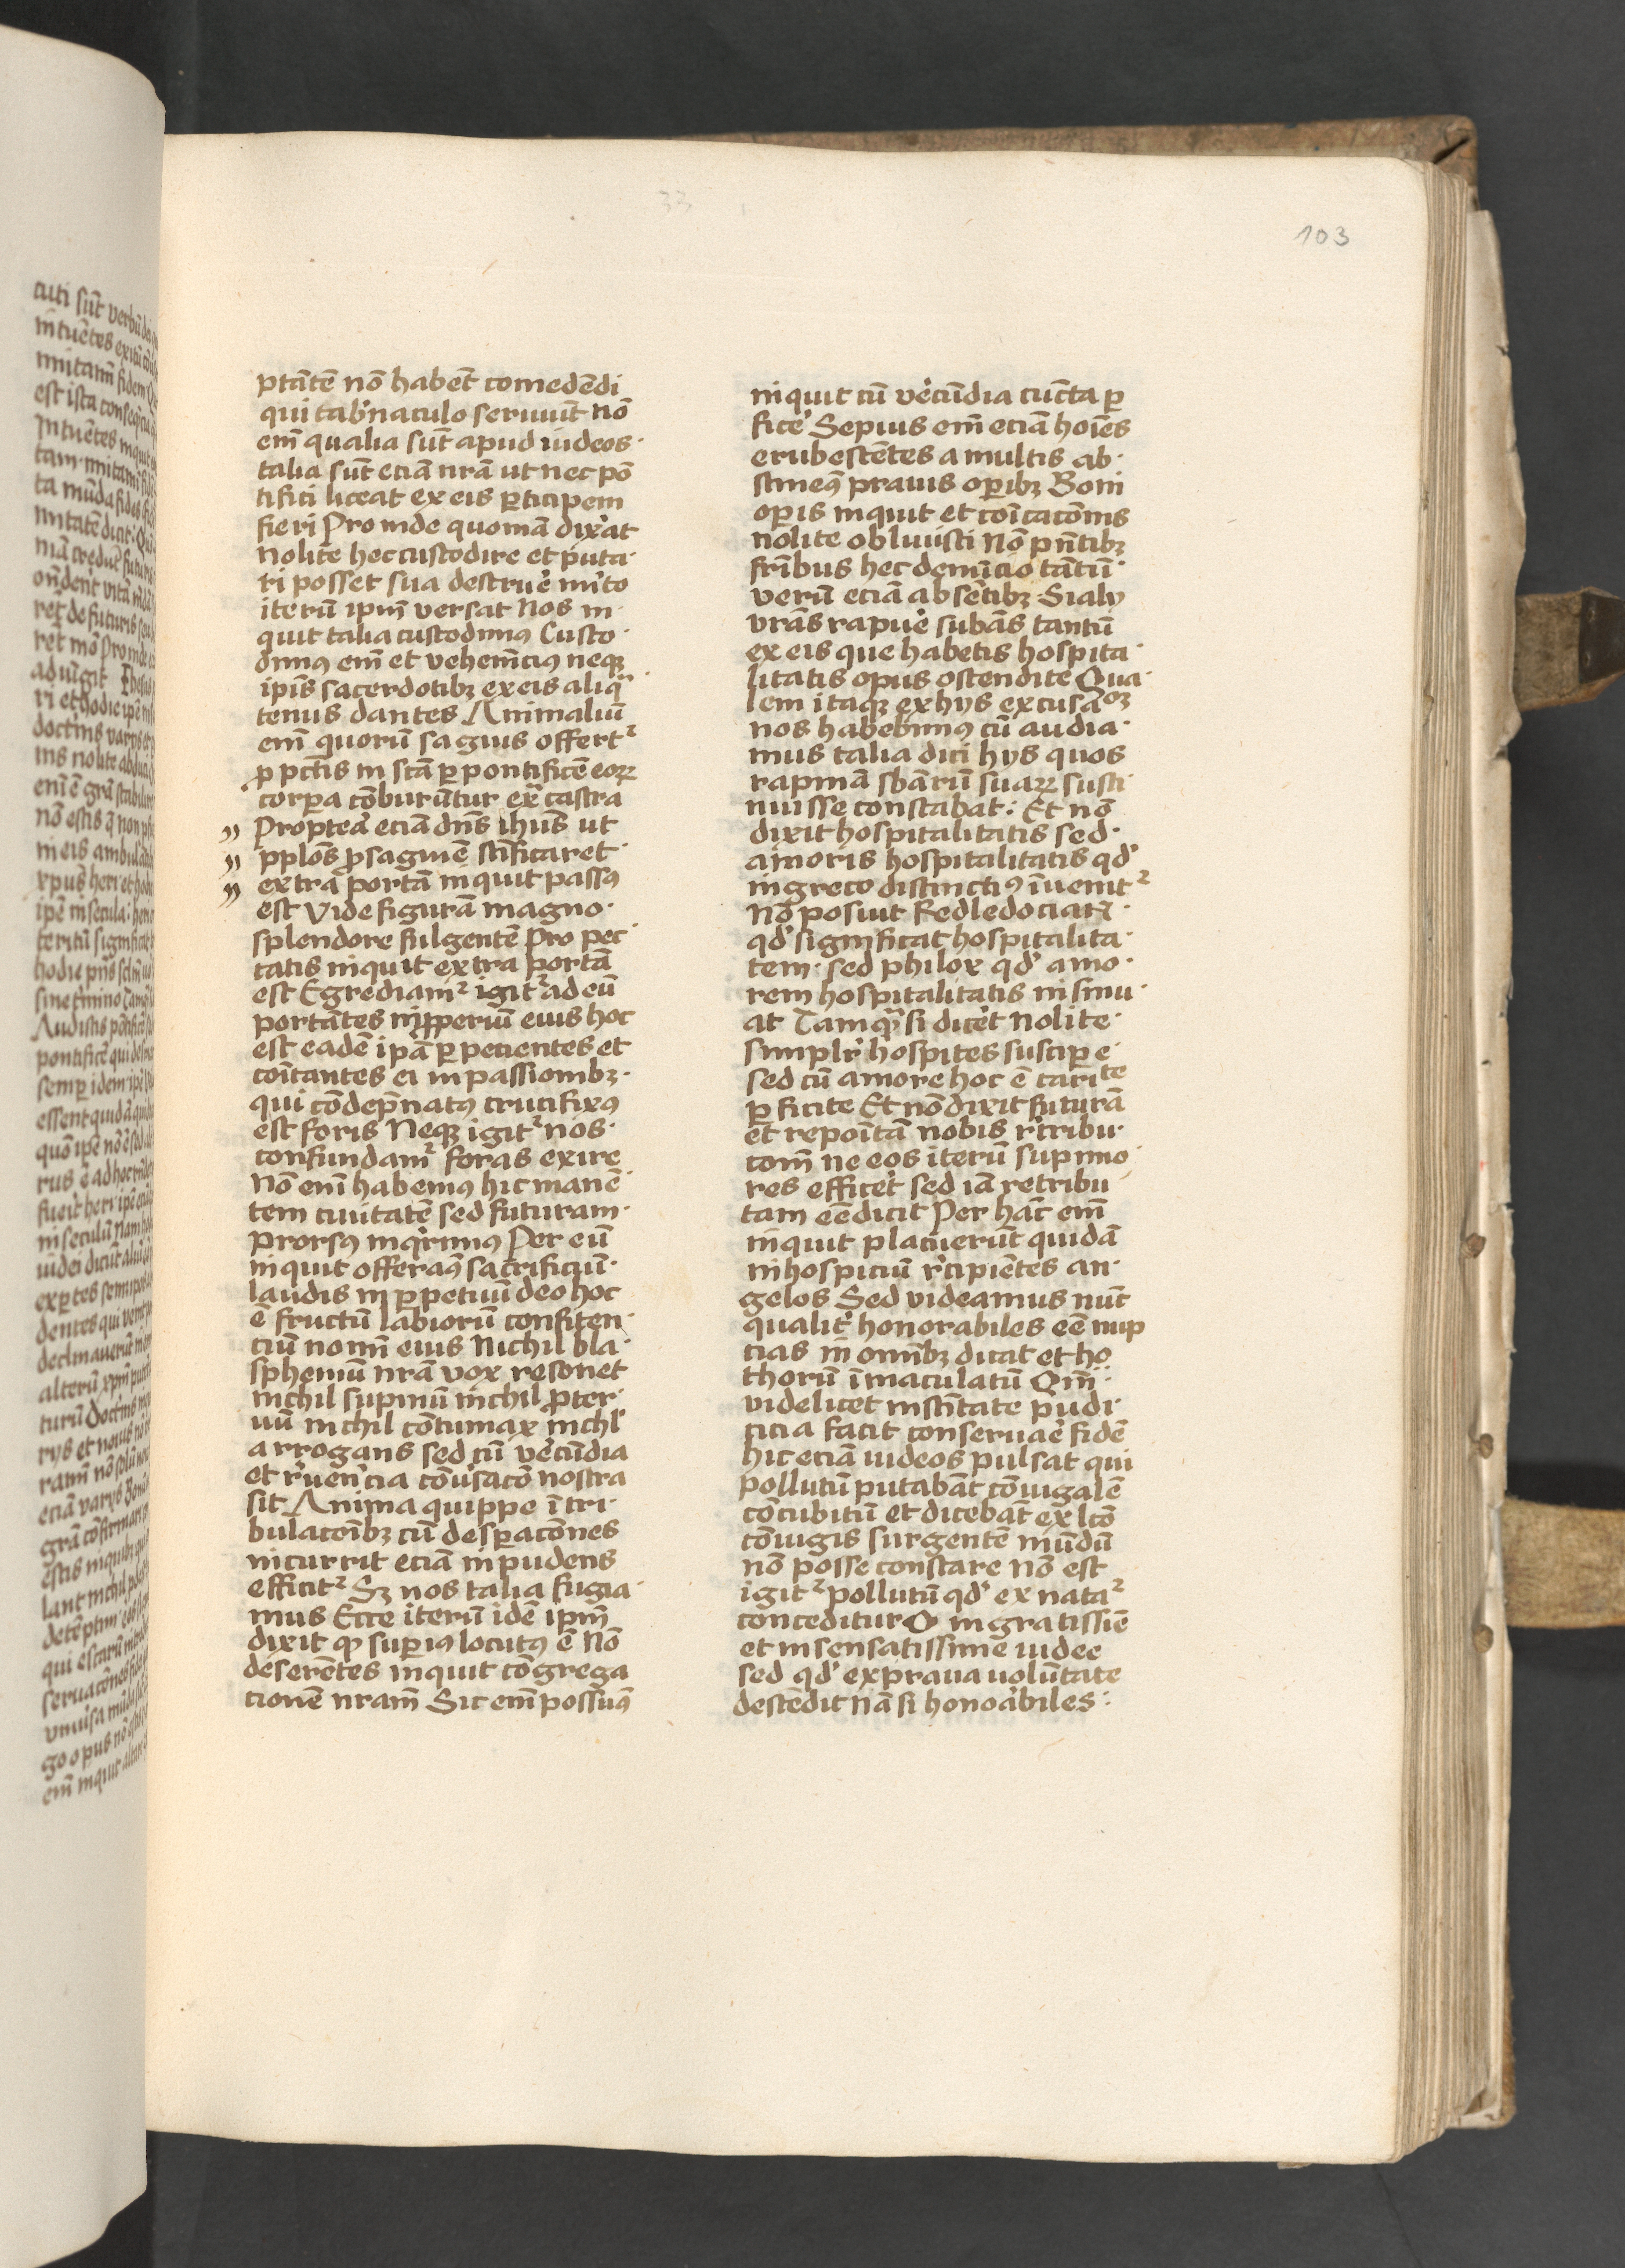 33
103
ptatē nō habēt comedēdi
qui tab'naculo seruiūt nō
em̄ qualia sūt apud iudeos·
talia sūt eciā nrā ut nec pō
tifici liceat ex eis pticipem
fieri Proinde quoniā dix'at
Nolite hec custodire et puta·
ri posset sua destrue' mito
iterū ipm̄ versat Nos in·
quit talia custodimꝰ Custo·
dimꝰ em̄ et vehem̄ciꝰ neqꝫ
ip̄is sacerdotibꝫ ex eis aliqͣ
tenus dantes Animaliū
em̄ quorū saguis offertᷣ
ꝓ pctīs in scā ꝑ pontificē eoꝝ
corpa cōburūtur exͣ castra
Proptea eciā dn̄s ihūs ut
pplōs ꝑ saguinē sc̄ificaret
extra portā inquit passꝰ
est Vide figurā magno·
splendore fulgentē Pro pec·
catis inquit extra portā
est Egrediamᷣ igitᷣ ad eū
portātes inpperiū eius hoc
est eadē ipā ꝑpecientes et
coītantes ei in passionibꝫ·
qui cōdep̄natꝰ crucifixꝰ
est foris Neqꝫ igitᷣ nos·
confundamᷣ foras exire
Nō em̄ habemꝰ hic manē·
tem ciuitatē sed futuram·
prorsꝰ inqͥrimꝰ Per eū
inquit offeramꝰ sacrificiū·
laudis in ꝑpetuū deo hoc
ē fructū labiorū confiten·
ciū nomī eius Nichil bla·
sphemū nrā vox resonet
nichil supnū nichil ꝓter·
uū nichil cōtumax nichl'
arrogans sed cū ve'cūdia
et r'uencia cōu'sacō nostra
sit Anima quippe ī tri·
bulacōibꝫ cū despacōnes
incurrit eciā inpudens
efficitᷣ Sꝫ nos talia fugia·
mus Ecce iterū idē ipm̄
dixit qͦ superiꝰ locutꝰ ē Nō
deserētes inquit cōgrega
tionē nram̄ Sic em̄ possumꝰ
inquit cū ve'cūdia cūcta ꝑ
fice' Sepius em̄ eciā hoīes
erubescētes a multis ab·
stinemꝰ prauis oꝑibꝫ Boni
oꝑis inquit et coīcacōnis
nolite obliuisci Nō pn̄tibꝫ
frībus hec denūcio tātū·
verū eciā absētibꝫ Si aly
vrās rapue' subās tantū
ex eis que habetis hospita·
litatis opus ostendite Qua·
lem itaqꝫ ex hys excusacoꝫ
nos habebimꝰ cū audia·
mus talia dici hys quos
rapinā sbārū suaꝝ susti·
nuisse constabat: Et nō
dixit hospitalitatis sed·
amoris hospitalitatis qd'
in greco distinctiꝰ īuenitᷣ
Nō posuit
qd' significat hospitalita·
tem· sed philox qd' amo·
rem hospitalitatis insinu·
at Tamqͣ si dice't Nolite·
simplr' hospites suscipe·
sed cū amore hoc ē caritate
ꝑficite Et nō dixit futurā
et repoītā nobis r'tribu·
com̄ ne eos iterū supino·
res effice't sed iā retribu·
tam eē dicit Per hāc em̄
inquit placuerūt quidā
in hospiciū r'cipiētes an·
gelos Sed videamus nūc
qualit' honorabiles eē nup
cias in omībꝫ dicat et ho
thorū īmaculatū Qm̄·
videlicet in sc̄itate pudi·
cicia facit conseruae' fidē
hic eciā iudeos pulsat qui
pollutū putabāt cōiugalē
cōcubitū et dicebāt ex lcō
cōiugis surgentē mūdū
nō posse constare Nō est
igitᷣ pollutū qd' ex nataᷣ
conceditur O ingratissīe
et insensatissime iudee
sed qd' ex praua uolūtate
descēdit Nā si honoabiles: